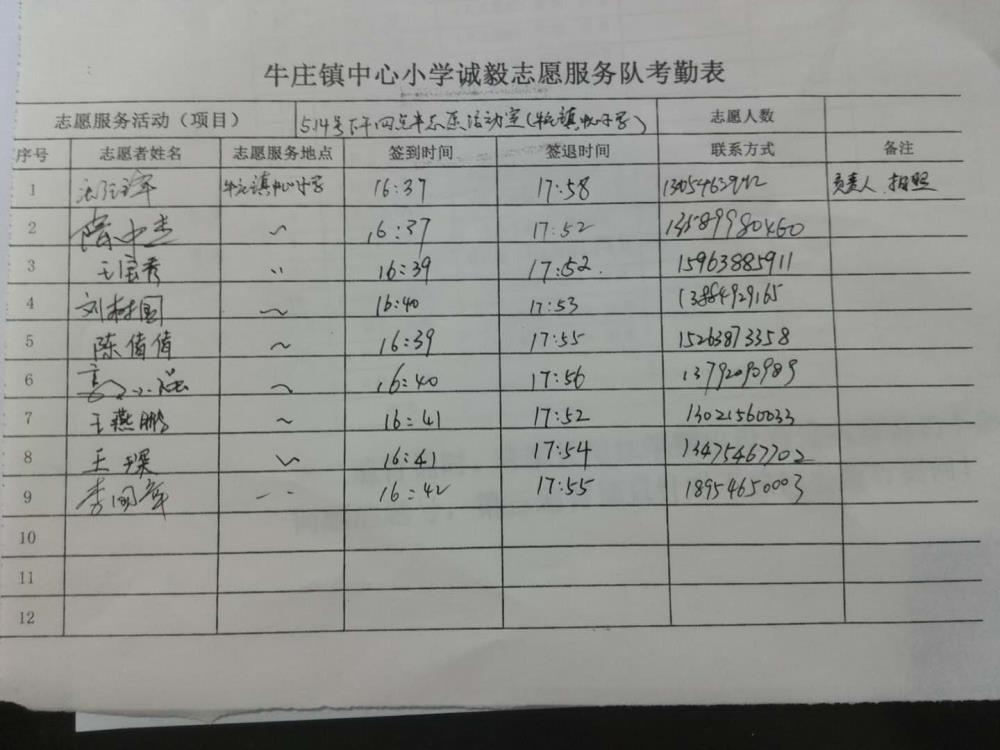 牛庄镇中心小学诚毅志愿服务队考勤表
志愿服务活动（项目） 5.14号下午四点半志愿活动室(牛庄镇中心小学) 志愿人数
序号 志愿者姓名 志愿服务地点 签到时间 签退时间 联系方式 备注
1 牛庄镇中心小学 16:37 17:58 负责人、拍照
2 〃 16:37 17:52 13589980460
3 王宝秀 〃 16:39 17:52. 15963885911
4 刘树国 〃 16:40 17:53 13884929165
5 陈倩倩 〃 16:39 17:55 15263873358
6 〃 16:40 17:56 13792090989
7 王燕鹏 〃 16:41 17:52 13021560033
8 王琛 〃 16:41 17:54 13475467702
9 〃 16:42 17:55 18954650003
10
11
12